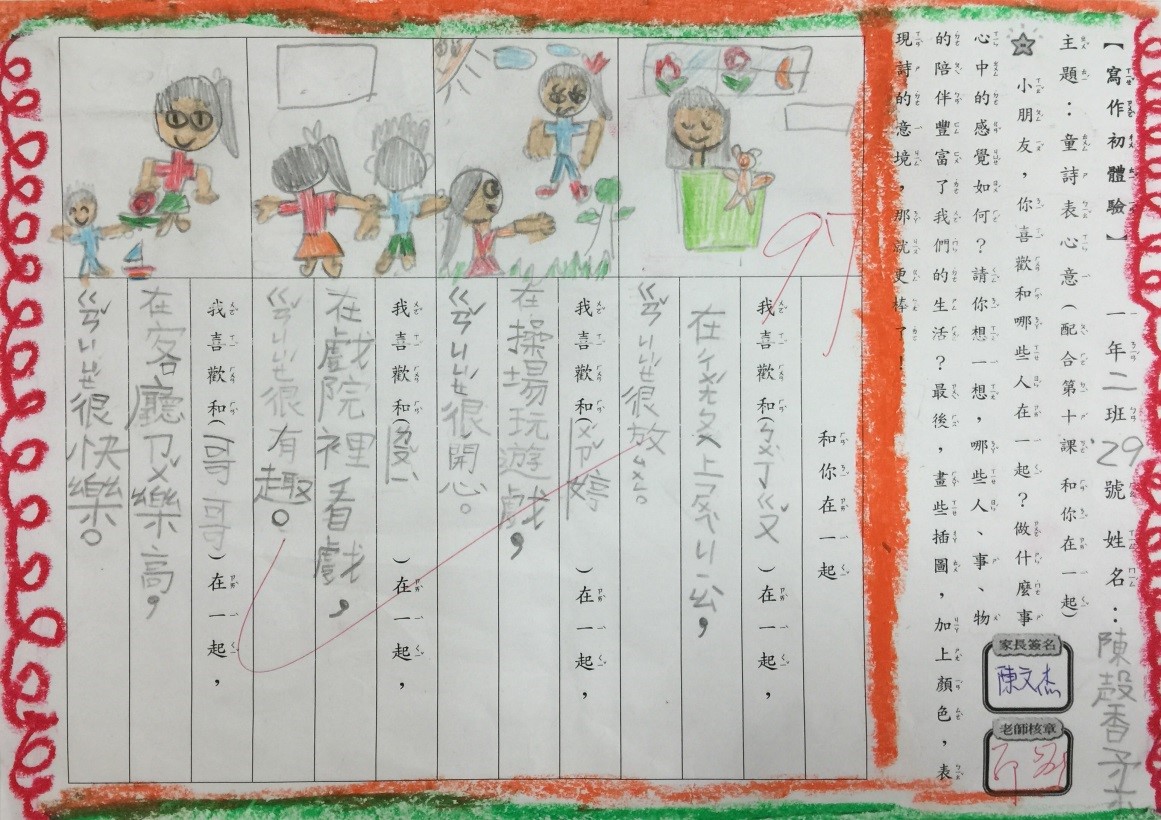 【寫作初體驗】一年二班29號 姓名：陳
主題：童詩表心意（配合第十課 和你在一起）
小朋友，你喜歡和哪些人在一起？做什麼事
心中的感覺如何？請你想一想，哪些人、事、物
的陪伴豐富了我們的生活？最後，畫些插圖，加上顏色，表
現詩的意境，那就更棒了！
家長簽名
陳文杰
老師核章
97
和你在一起
我喜歡和(ㄅㄨˋㄒㄍㄡˇ)在一起，
在ㄕㄨㄈㄤˊ上ㄈㄢˊㄐㄧㄢˇ，
ㄍㄢˇㄐㄩㄝˊ很放ㄙㄨㄥ。
我喜歡和(ㄨㄣˊ婷)在一起，
在操場玩遊戲，
ㄍㄢˇㄐㄩㄝˊ很開心。
我喜歡和()在一起，
在戲院裡看戲，
ㄍㄢˇㄐㄩㄝˊ很有趣。
我喜歡和(哥哥)在一起，
在客廳ㄗㄨˇ樂高，
ㄍㄢˇㄐㄩㄝˊ很快樂。